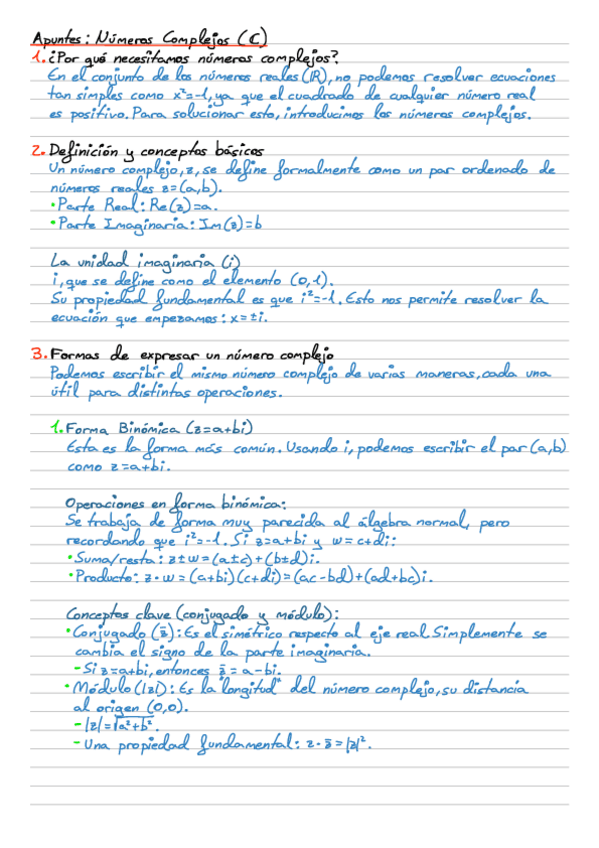 Apuntes: Números Complejos (C)
1. ¿Por qué necesitamos números complejos?
En el conjunto de los números reales (ℝ), no podemos resolver ecuaciones
tan simples como x²=-1, ya que el cuadrado de cualquier número real
es positivo. Para solucionar esto, introducimos los números complejos.
2. Definición y conceptos básicos
Un número complejo, z, se define formalmente como un par ordenado de
números reales z=(a,b).
• Parte Real: Re(z)=a.
• Parte Imaginaria: Im(z)=b
La unidad imaginaria (i)
i, que se define como el elemento (0,-1).
Su propiedad fundamental es que i²=-1. Esto nos permite resolver la
ecuación que empezamos: x=±i.
3. Formas de expresar un número complejo
Podemos escribir el mismo número complejo de varias maneras, cada una
útil para distintas operaciones.
1. Forma Binómica (z=a+bi)
Esta es la forma más común. Usando i, podemos escribir el par (a,b)
como z=a+bi.
Operaciones en forma binómica:
Se trabaja de forma muy parecida al álgebra normal, pero
recordando que i²=-1. Si z=a+bi y w=c+di:
• Suma/resta: z±w=(a±c)+(b±d)i.
• Producto: z·w=(a+bi)(c+di)=(ac-bd)+(ad+bc)i.
Conceptos clave (conjugado y módulo):
• Conjugado (z̄): Es el simétrico respecto al eje real. Simplemente se
cambia el signo de la parte imaginaria.
- Si z=a+bi, entonces z̄=a-bi.
• Módulo (|z|): Es la "longitud" del número complejo, su distancia
al origen (0,0).
- |z|=√a²+b².
- Una propiedad fundamental: z·z̄=|z|².